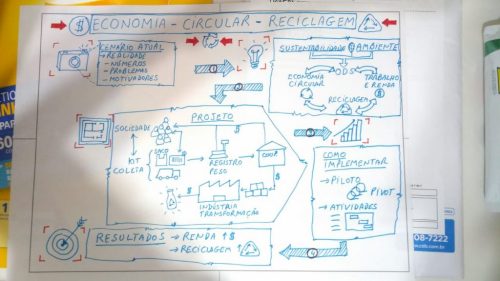 ECONOMIA - CIRCULAR - RECICLAGEM
CENÁRIO ATUAL
→ REALIDADE
- NÚMEROS
- PROBLEMAS
- MOTIVADORES
SUSTENTABILIDADE AMBIENTE
ODS
ECONOMIA CIRCULAR
TRABALHO E RENDA
RECICLAGEM
PROJETO
SOCIEDADE
KIT COLETA
SACO
REGISTRO PESO
COOP.
INDÚSTRIA TRANSFORMAÇÃO
COMO IMPLEMENTAR
→ PILOTO
PIVOT
→ ATIVIDADES
RESULTADOS → RENDA ↑$
→ RECICLAGEM ↑
08-7222